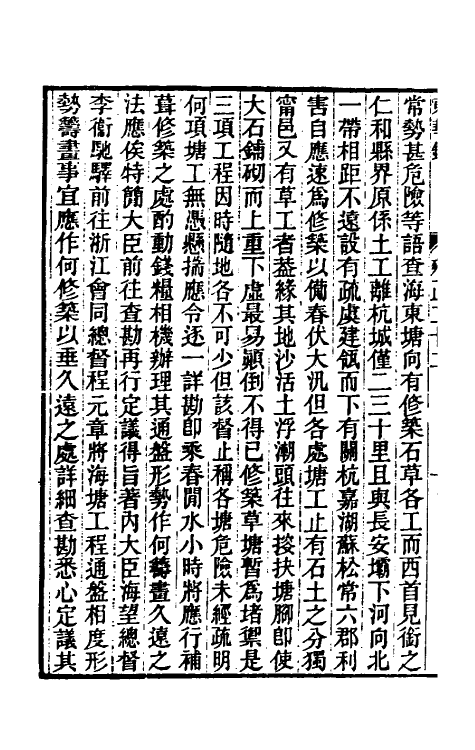 常勢甚危險等語查海東塘向有修築石草各工而西首見銜之
仁和縣界原係土工離杭城僅二三十里且與長安壩下河向北
一帶相距不遠設有疏虞建瓴而下有關杭嘉湖蘇松常六郡利
害自應速爲修築以備春伏大汛但各處塘工止有石土之分獨
甯邑又有草工者葢緣其地沙活土浮潮頭往來搜抉塘腳即使
大石鋪砌而上重下虛最易顚倒不得已修築草塘暫爲堵禦是
三項工程因時隨地各不可少但該督止稱各塘危險未經疏明
何項塘工無憑懸揣應令逐一詳勘即乘春閒水小時將應行補
葺修築之處酌動錢糧相機辦理其通盤形勢作何籌畫久遠之
法應俟特簡大臣前往查勘再行定議得旨著內大臣海望總督
李衞馳驛前往浙江會同總督程元章將海塘工程通盤相度形
勢籌畫事宜應作何修築以垂久遠之處詳細查勘悉心定議其